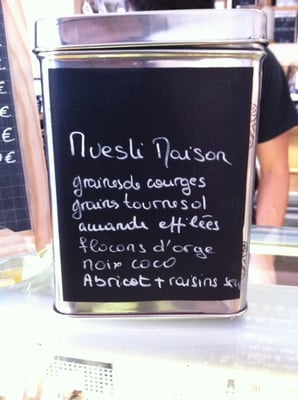 Muesli Maison
graines de courges
grains tournesol
amande effilées
flocons d'orge
noix coco
Abricot + raisins sec